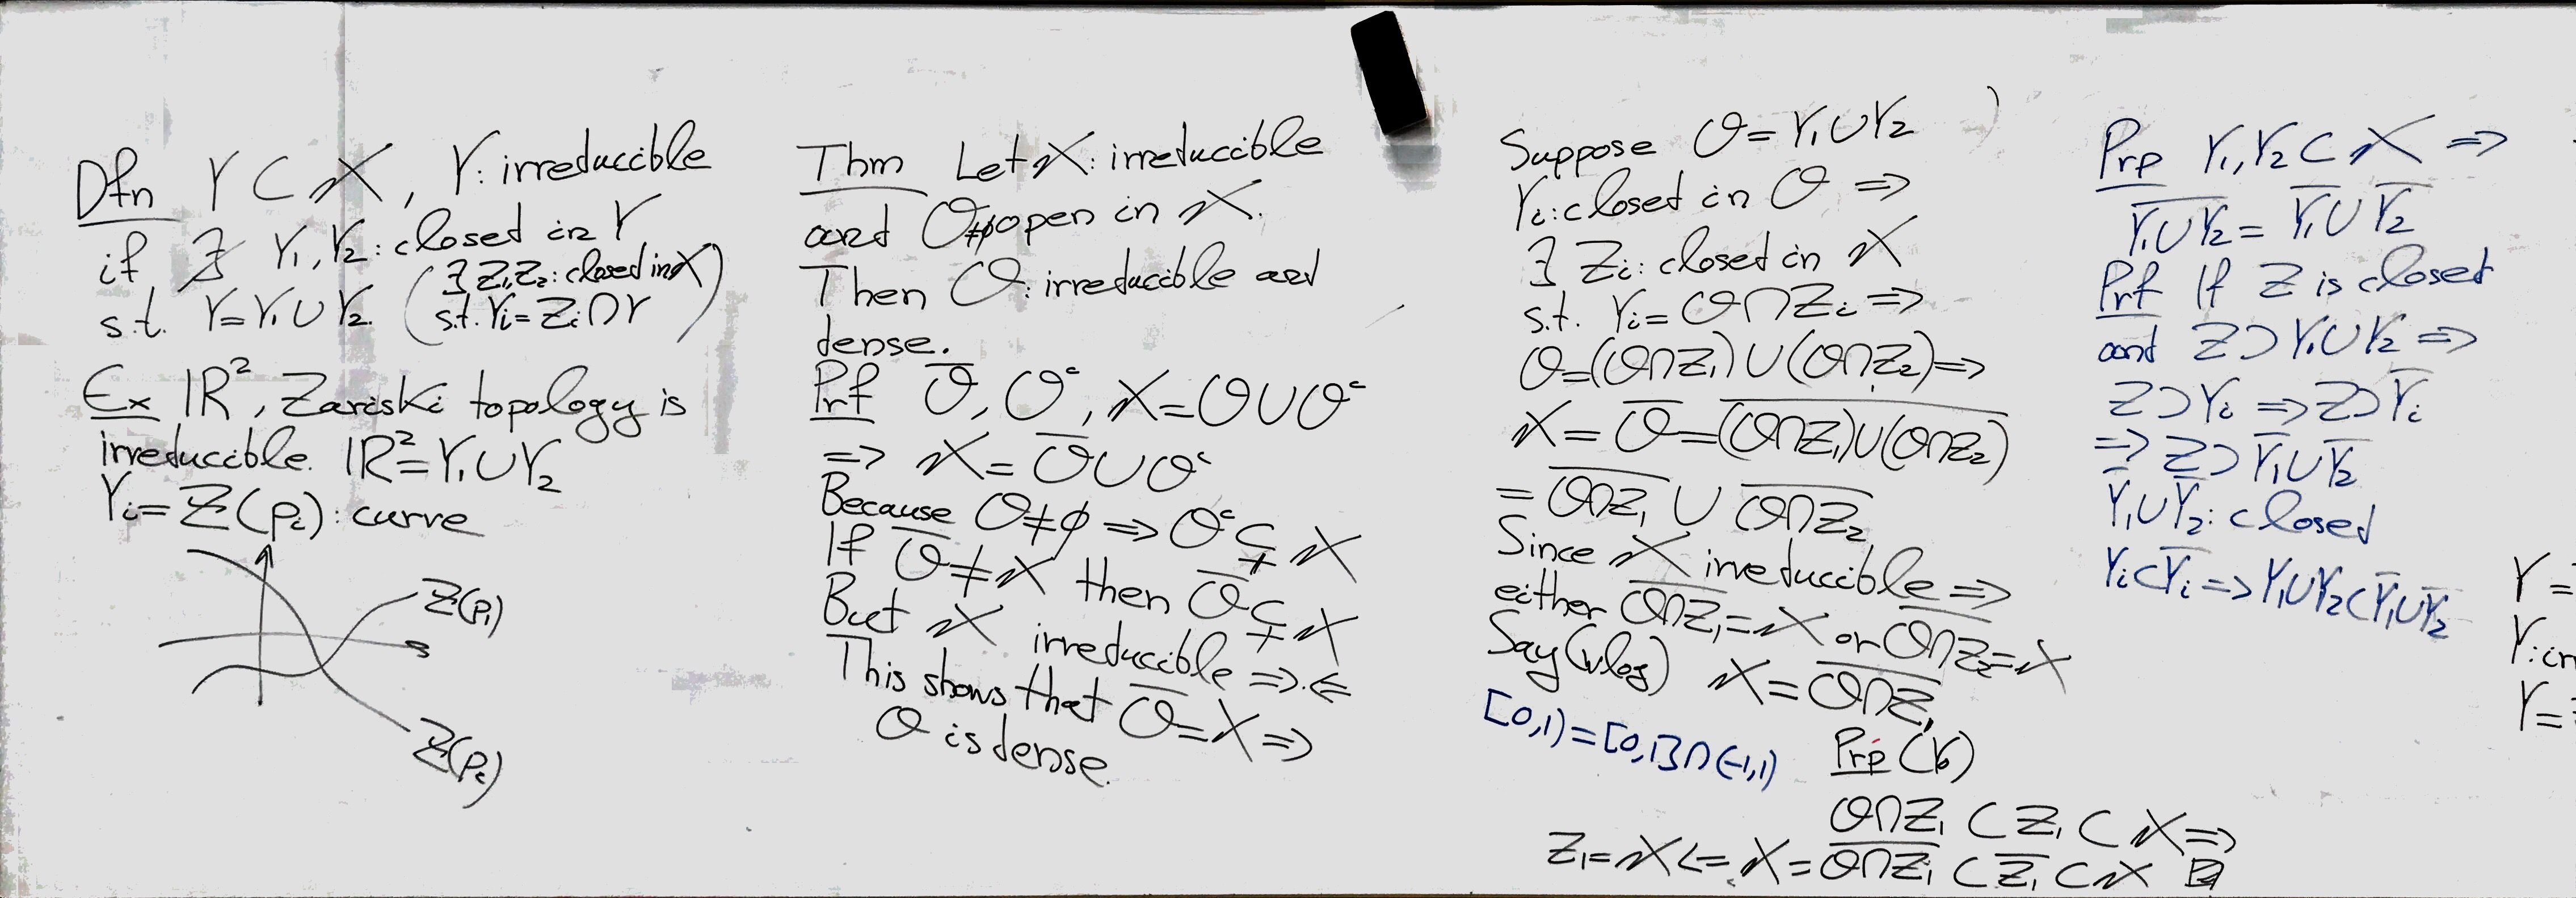 Dfn Y ⊂ X, Y: irreducible
if ∄ Y₁, Y₂: closed in Y
s.t. Y = Y₁ ∪ Y₂. (∃ Z₁, Z₂: closed in X
s.t. Yᵢ = Zᵢ ∩ Y)
Ex ℝ², Zariski topology is
irreducible. ℝ² = Y₁ ∪ Y₂
Yᵢ = Z(pᵢ): curve
Z(p₁)
Z(p₂)
Thm Let X: irreducible
and O≠∅ open in X.
Then O: irreducible and
dense.
Prf O̅, Oᶜ, X = O ∪ Oᶜ
=> X = O̅ ∪ Oᶜ
Because O ≠ ∅ => Oᶜ ⊊ X
If O̅ ≠ X then O̅ ⊊ X
But X irreducible =>.<=
This shows that O̅ = X =>
O is dense.
Suppose O = Y₁ ∪ Y₂
Yᵢ: closed in O =>
∃ Zᵢ: closed in X
s.t. Yᵢ = O ∩ Zᵢ =>
O = (O∩Z₁) ∪ (O∩Z₂) =>
X = O̅ = \overline{(O∩Z₁) ∪ (O∩Z₂)}
= \overline{O∩Z₁} ∪ \overline{O∩Z₂}
Since X irreducible =>
either \overline{O∩Z₁} = X or \overline{O∩Z₂} = X
Say (wlog) X = \overline{O∩Z₁}
[0,1) = [0,1] ∩ (-1,1)
Prp (V)
O∩Z₁ ⊂ Z₁ ⊂ X =>
Z₁ = X <= X = \overline{O∩Z₁} ⊂ \overline{Z₁} ⊂ X
Prp Y₁, Y₂ ⊂ X =>
\overline{Y₁ ∪ Y₂} = \overline{Y₁} ∪ \overline{Y₂}
Prf If Z is closed
and Z ⊃ Y₁ ∪ Y₂ =>
Z ⊃ Yᵢ => Z ⊃ \overline{Yᵢ}
=> Z ⊃ \overline{Y₁} ∪ \overline{Y₂}
\overline{Y₁} ∪ \overline{Y₂}: closed
Yᵢ ⊂ \overline{Yᵢ} => Y₁ ∪ Y₂ ⊂ \overline{Y₁} ∪ \overline{Y₂}
Y =
Y:
Y =